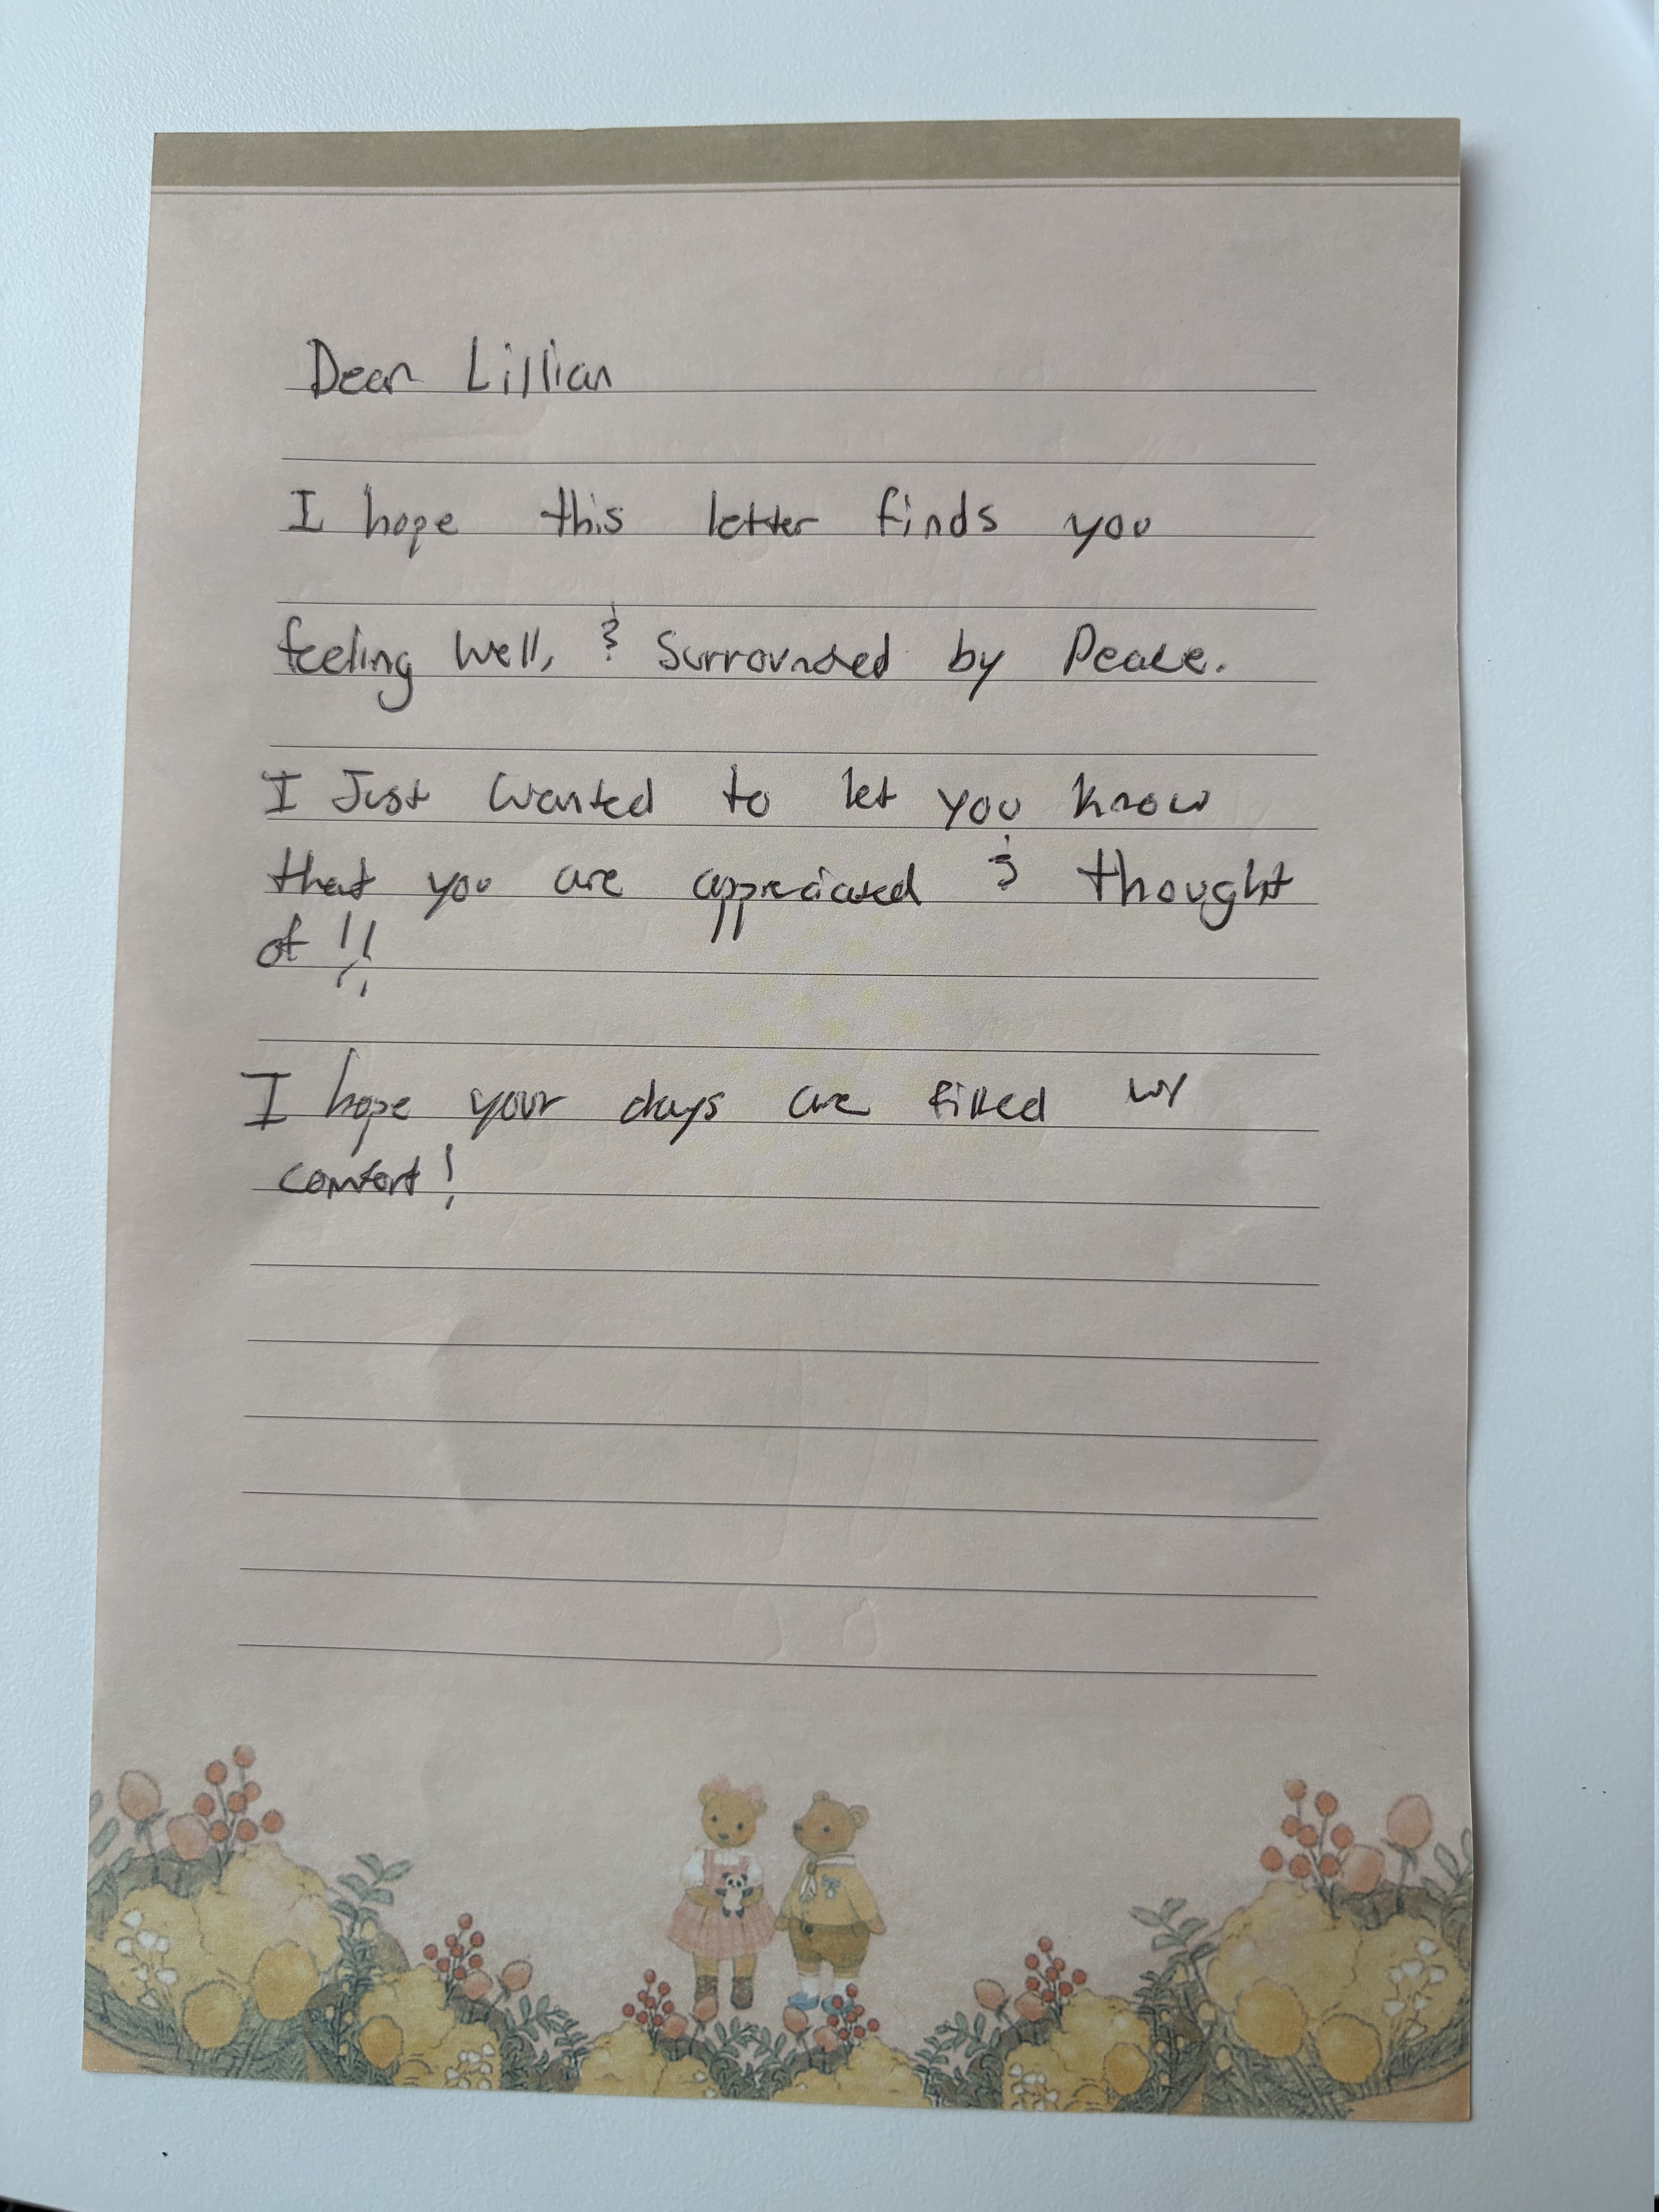 Dear Lillian
I hope this letter finds you
feeling well, & Surrounded by Peace.
I Just wanted to let you know
that you are appreciated & thought
of !!
I hope your days are filled w/
comfort!